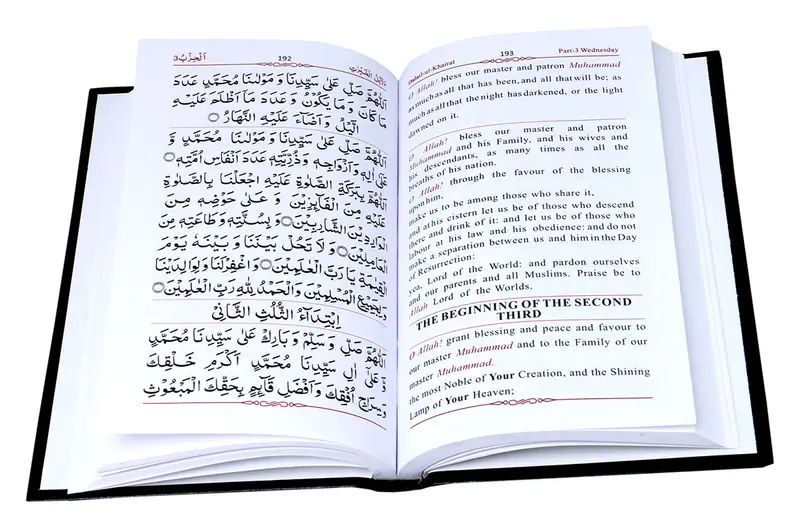 الحِزْبُ 3
192
دَلَائِلُ الخَيْرَات
اَللّٰهُمَّ صَلِّ عَلٰى سَيِّدِنَا وَمَوْلٰىنَا مُحَمَّدٍ عَدَدَ
مَا كَانَ وَمَا يَكُوْنُ وَعَدَدَ مَآ اَظْلَمَ عَلَيْهِ
الَّيْلُ وَاَضَآءَ عَلَيْهِ النَّهَارُ
اَللّٰهُمَّ صَلِّ عَلٰى سَيِّدِنَا وَمَوْلٰىنَا مُحَمَّدٍ وَّ
عَلٰى اٰلِهٖ وَاَزْوَاجِهٖ وَذُرِّيَّتِهٖ عَدَدَ اَنْفَاسِ اُمَّتِهٖ
اَللّٰهُمَّ بِبَرَكَةِ الصَّلٰوةِ عَلَيْهِ اجْعَلْنَا بِالصَّلٰوةِ
عَلَيْهِ مِنَ الْفَآئِزِيْنَ وَ عَلٰى حَوْضِهٖ مِنَ
الْوَارِدِيْنَ الشَّارِبِيْنَ وَبِسُنَّتِهٖ وَطَاعَتِهٖ مِنَ
الْعَامِلِيْنَ وَلَا تَحُلْ بَيْنَنَا وَ بَيْنَهٗ يَوْمَ
الْقِيٰمَةِ يَا رَبَّ الْعٰلَمِيْنَ وَاغْفِرْلَنَا وَلِوَالِدَيْنَا
وَلِجَمِيْعِ الْمُسْلِمِيْنَ وَالْحَمْدُ لِلّٰهِ رَبِّ الْعٰلَمِيْنَ
اِبْتِدَآءُ الثُّلُثِ الثَّانِيْ
اَللّٰهُمَّ صَلِّ وَسَلِّمْ وَبَارِكْ عَلٰى سَيِّدِنَا مُحَمَّدٍ
وَّ عَلٰٓى اٰلِ سَيِّدِنَا مُحَمَّدٍ اَكْرَمِ خَلْقِكَ
وَسِرَاجِ اُفُقِكَ وَاَفْضَلِ قَآئِمٍ بِحَقِّكَ الْمَبْعُوْثِ
Dalail-ul-Khairat
193
Part-3 Wednesday
O Allah! bless our master and patron Muhammad
as much as all that has been, and all that will be; as
much as all that the night has darkened, or the light
dawned on it.
O Allah! bless our master and patron
Muhammad and his Family, and his wives and
his descendants, as many times as all the
breaths of his nation.
O Allah! through the favour of the blessing
upon him,
make us to be among those who share it,
and at his cistern let us be of those who descend
there and drink of it: and let us be of those who
labour at his law and his obedience: and do not
make a separation between us and him in the Day
of Resurrection:
yea, Lord of the World: and pardon ourselves
and our parents and all Muslims. Praise be to
Allah Lord of the Worlds.
THE BEGINNING OF THE SECOND
THIRD
O Allah! grant blessing and peace and favour to
our master Muhammad and to the Family of our
master Muhammad.
the most Noble of Your Creation, and the Shining
Lamp of Your Heaven;